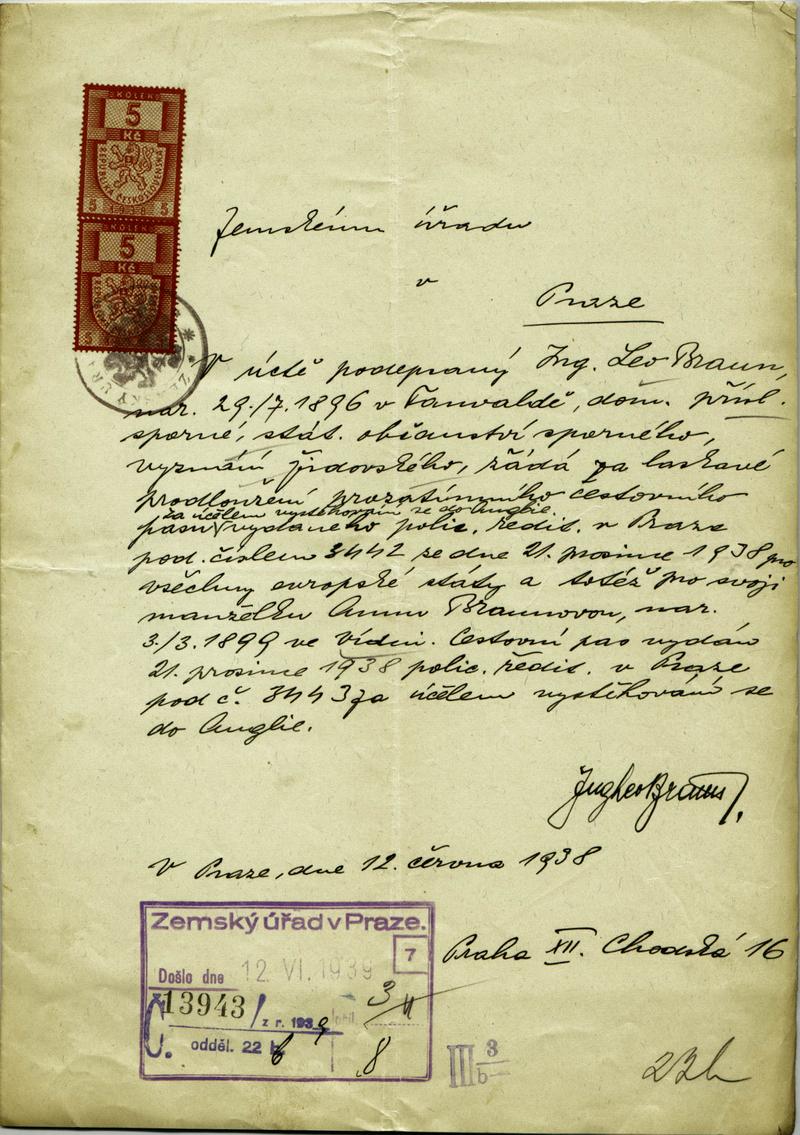 KOLEK
5
Kč
REPUBLIKA ČESKOSLOVENSKÁ
5 1938 5
KOLEK
5
Kč
Zemskému úřadu
v
Praze
V úctě podepsaný Ing. Leo Braun,
nar. 29./7. 1896 v Tanvaldě, dom. přísl.
sporné, stát. občanství sporného,
vyznání židovského, žádá za laskavé
prodloužení prozatimního cestovního
za účelem vystěhování se do Anglie.
pasu vydaného polic. ředit. v Praze
pod. číslem 3442 ze dne 21. prosince 1938 pro
všechny evropské státy a totéž pro svoji
manželku Annu Braunovou, nar.
3./3. 1899 ve Vídni. Cestovní pas vydán
21. prosince 1938 polic. ředit. v Praze
pod č. 3443 za účelem vystěhování se
do Anglie.
Ing Leo Braun
V Praze, dne 12. června 1938
Praha XII. Chodská 16
Zemský úřad v Praze.
7
Došlo dne 12. VI. 1939
Č. 13943/ z r. 1939
odděl. 22 b
3
8
III 3
b
22b